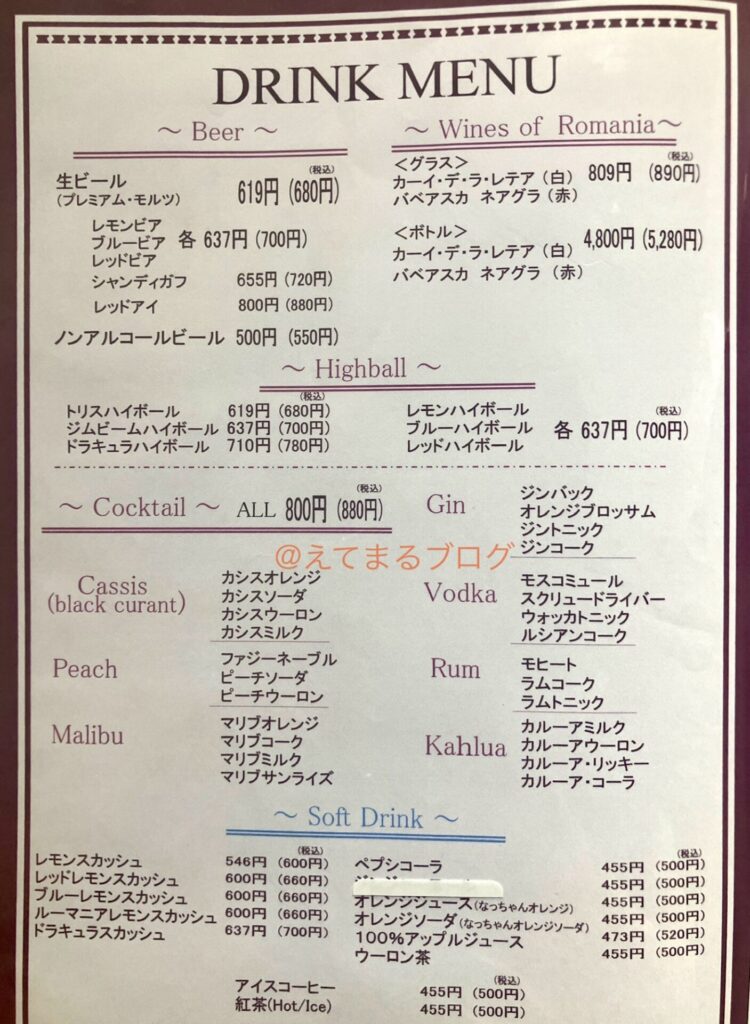 DRINK MENU
～ Beer ～
(税込)
生ビール
(プレミアム・モルツ) 619円 (680円)
レモンビア
ブルービア 各 637円 (700円)
レッドビア
シャンディガフ 655円 (720円)
レッドアイ 800円 (880円)
ノンアルコールビール 500円 (550円)
～ Wines of Romania～
(税込)
＜グラス＞
カーイ・デ・ラ・レテア (白) 809円 (890円)
バベアスカ ネアグラ (赤)
＜ボトル＞
カーイ・デ・ラ・レテア (白) 4,800円 (5,280円)
バベアスカ ネアグラ (赤)
～ Highball ～
(税込)
トリスハイボール 619円 (680円)
ジムビームハイボール 637円 (700円)
ドラキュラハイボール 710円 (780円)
(税込)
レモンハイボール
ブルーハイボール 各 637円 (700円)
レッドハイボール
(税込)
～ Cocktail ～ ALL 800円 (880円)
@えてまるブログ
Cassis
(black curant)
カシスオレンジ
カシスソーダ
カシスウーロン
カシスミルク
Peach
ファジーネーブル
ピーチソーダ
ピーチウーロン
Malibu
マリブオレンジ
マリブコーク
マリブミルク
マリブサンライズ
Gin
ジンバック
オレンジブロッサム
ジントニック
ジンコーク
Vodka
モスコミュール
スクリュードライバー
ウォッカトニック
ルシアンコーク
Rum
モヒート
ラムコーク
ラムトニック
Kahlua
カルーアミルク
カルーアウーロン
カルーア・リッキー
カルーア・コーラ
～ Soft Drink ～
(税込)
レモンスカッシュ 546円 (600円)
レッドレモンスカッシュ 600円 (660円)
ブルーレモンスカッシュ 600円 (660円)
ルーマニアレモンスカッシュ 600円 (660円)
ドラキュラスカッシュ 637円 (700円)
(税込)
ペプシコーラ 455円 (500円)
455円 (500円)
オレンジジュース(なっちゃんオレンジ) 455円 (500円)
オレンジソーダ(なっちゃんオレンジソーダ) 455円 (500円)
100%アップルジュース 473円 (520円)
ウーロン茶 455円 (500円)
(税込)
アイスコーヒー 455円 (500円)
紅茶(Hot/Ice) 455円 (500円)